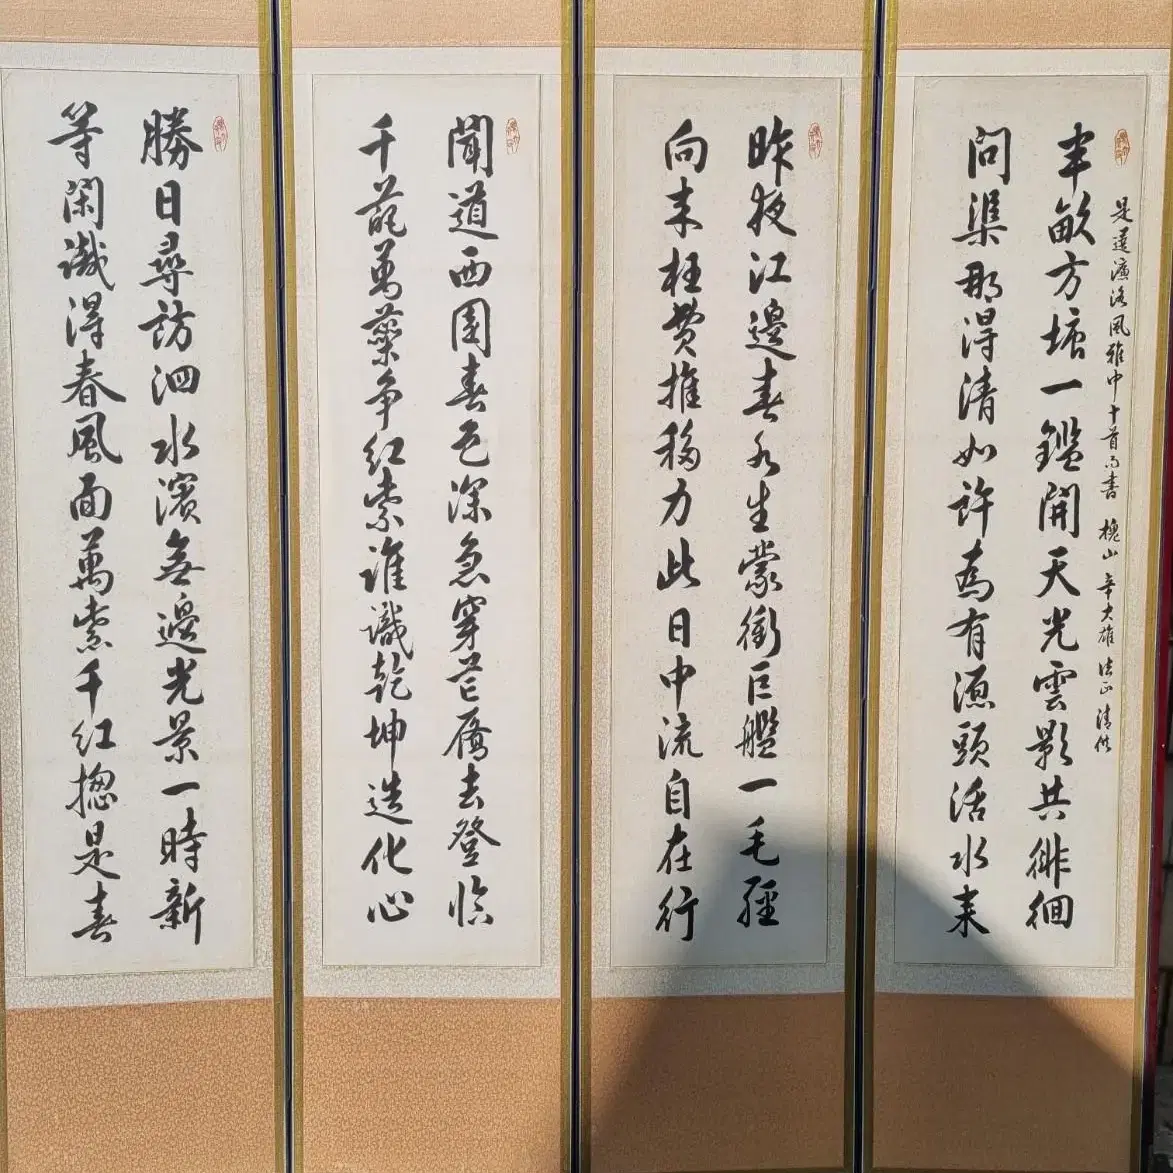 是選濂洛風雅中十首而書 槐山 辛大雄 法正 清供
半畝方塘一鑑開天光雲影共徘徊
問渠那得清如許為有源頭活水来
昨夜江邊春水生蒙衝巨艦一毛輕
向来枉費推移力此日中流自在行
聞道西園春色深急穿芒屩去登臨
千葩萬蘂争紅紫誰識乾坤造化心
勝日尋訪泗水濱無邊光景一時新
等閑識得春風面萬紫千紅揔是春